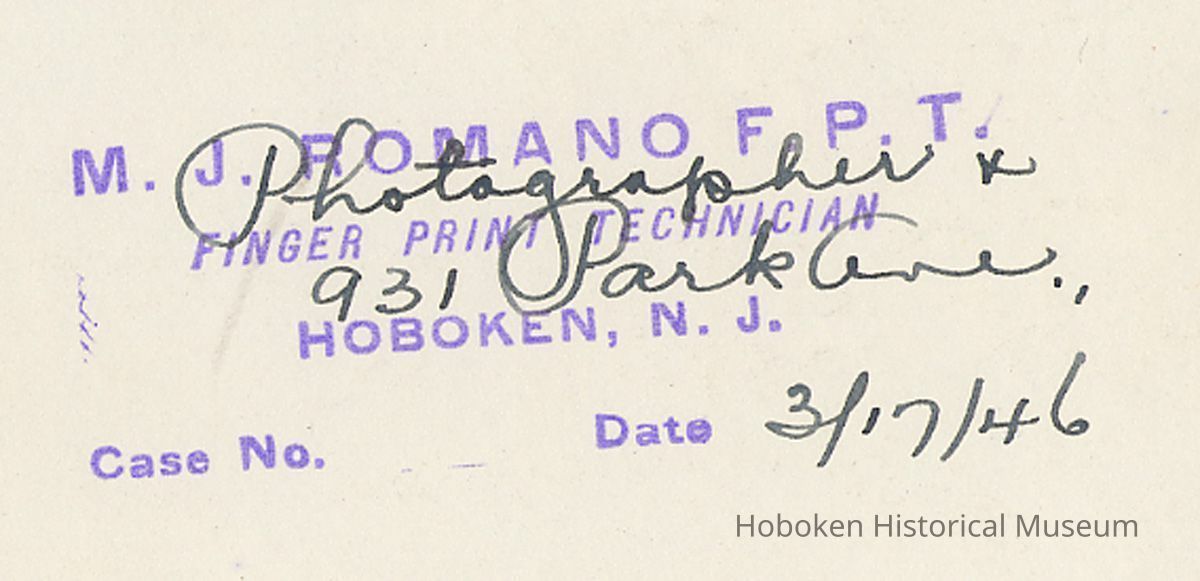 M. J. ROMANO F. P. T.
Photographer &
FINGER PRINT TECHNICIAN
931 Park Ave.,
HOBOKEN, N. J.
Case No. Date 3/17/46
Hoboken Historical Museum